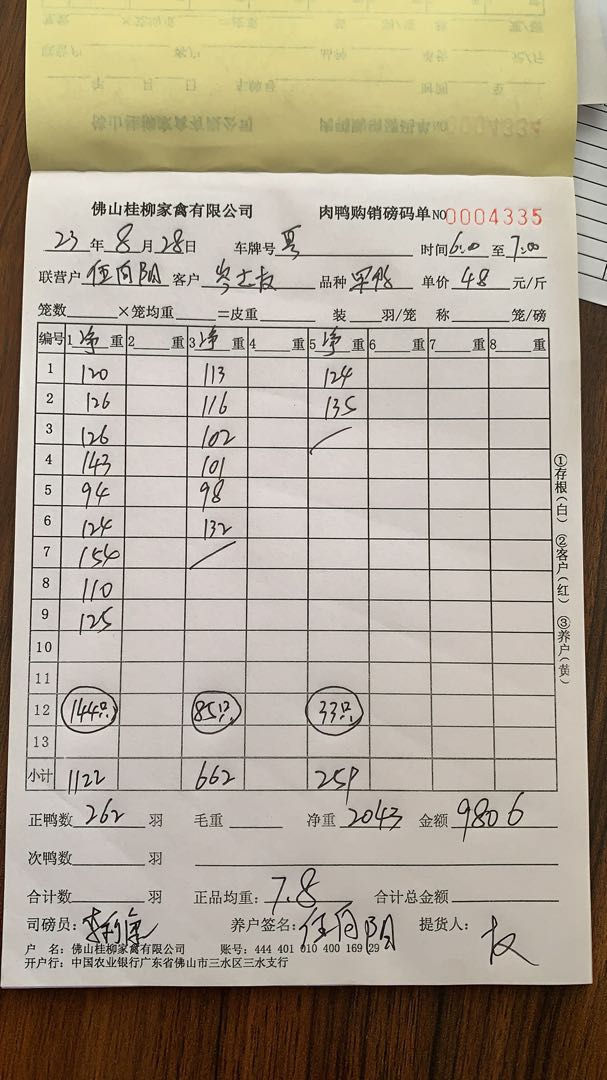 佛山桂柳家禽有限公司 肉鸭购销磅码单 NO 0004334
佛山桂柳家禽有限公司 肉鸭购销磅码单 NO 0004335
23 年 8 月 28 日 车牌号 时间 6:00 至 7:00
联营户 伍向阳 客户 品种 单价 4.8 元/斤
笼数 ×笼均重 =皮重 装 羽/笼 称 笼/磅
编号 1 净 重 2 重 3 净 重 4 重 5 净 重 6 重 7 重 8 重
1 120 113 124
2 126 116 135
3 126 102
4 143 101
5 94 98
6 124 132
7 154
8 110
9 125
10
11
12 144只 85只 33只
13
小计 1122 662 259
正鸭数 262 羽 毛重 净重 2043 金额 9806
次鸭数 羽
合计数 羽 正品均重: 7.8 合计总金额
司磅员: 养户签名: 伍向阳 提货人:
户 名: 佛山桂柳家禽有限公司 账号: 444 401 010 400 169 29
开户行: 中国农业银行广东省佛山市三水区三水支行
①存根(白) ②客户(红) ③养户(黄)